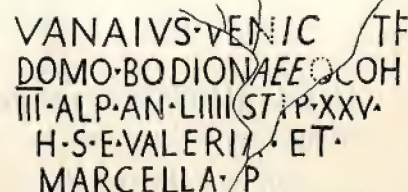 VANAIVS·VENIC TF
DOMO·BODIONAEE COH
III·ALP·AN·LIIII STIP·XXV·
H·S·E·VALERIA· ET·
MARCELLA· P